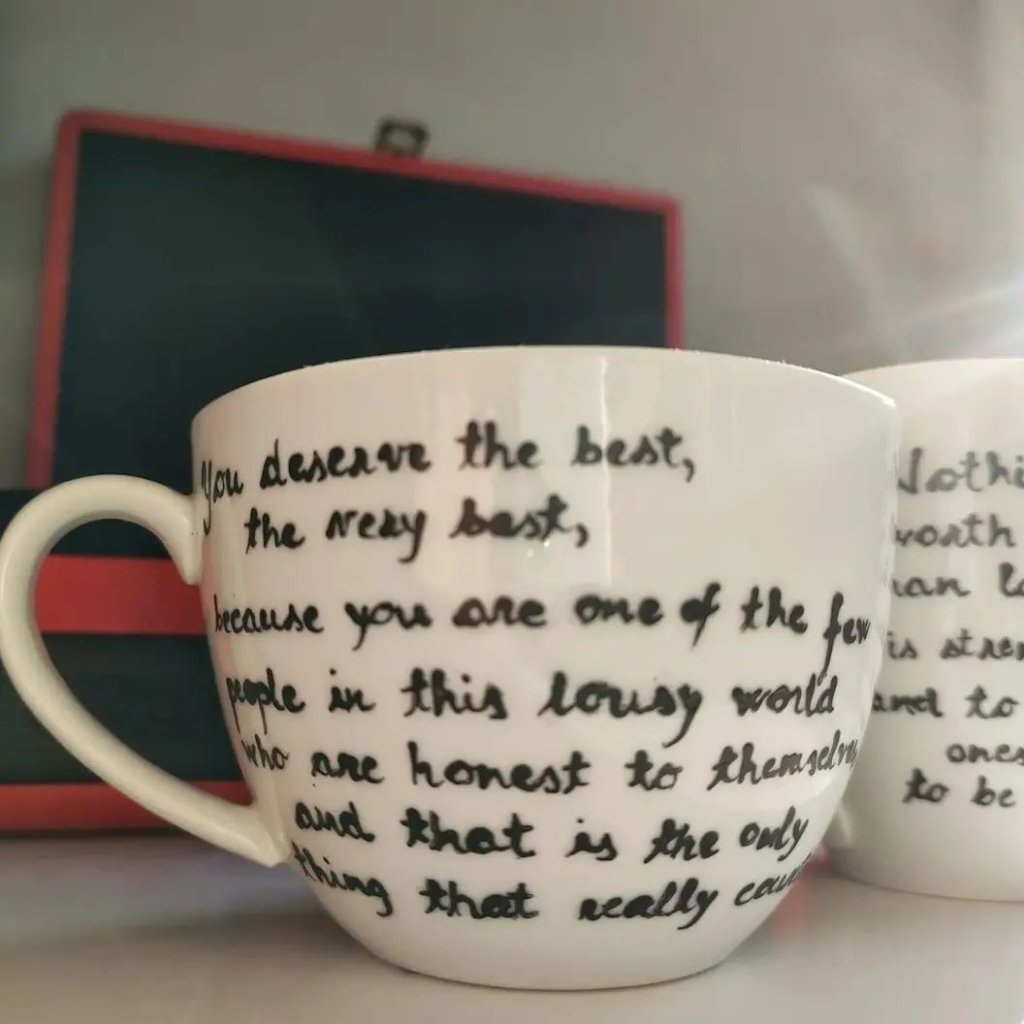 You deserve the best,
the very best,
because you are one of the few
people in this lousy world
who are honest to themselv
and that is the only
thing that really count
Nothi
worth
han
is stren
and to
ones
to be